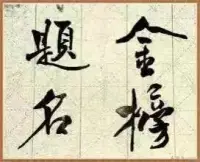 金榜
題名